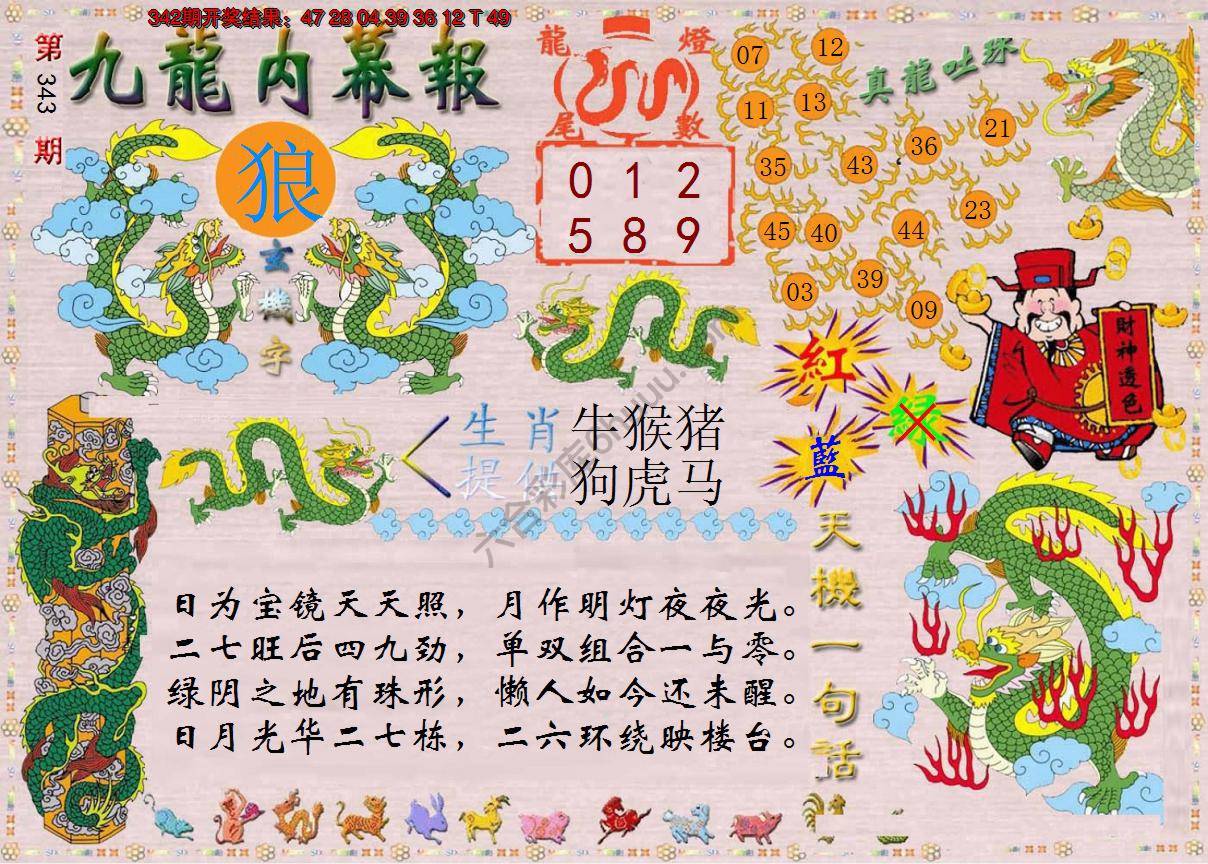 342期开奖结果：47 28 04 39 36 12 T 49
第343期
九龍内幕報
狼
玄機字
龍燈
尾數
0 1 2
5 8 9
真龍吐珠
07 12
11 13
35 43 36 21
45 40 44 23
03 39 09
財神透色
紅
绿
藍
生肖 牛猴猪
提供 狗虎马
六合彩库
天機一句話
日为宝镜天天照，月作明灯夜夜光。
二七旺后四九劲，单双组合一与零。
绿阴之地有珠形，懒人如今还未醒。
日月光华二七栋，二六环绕映楼台。